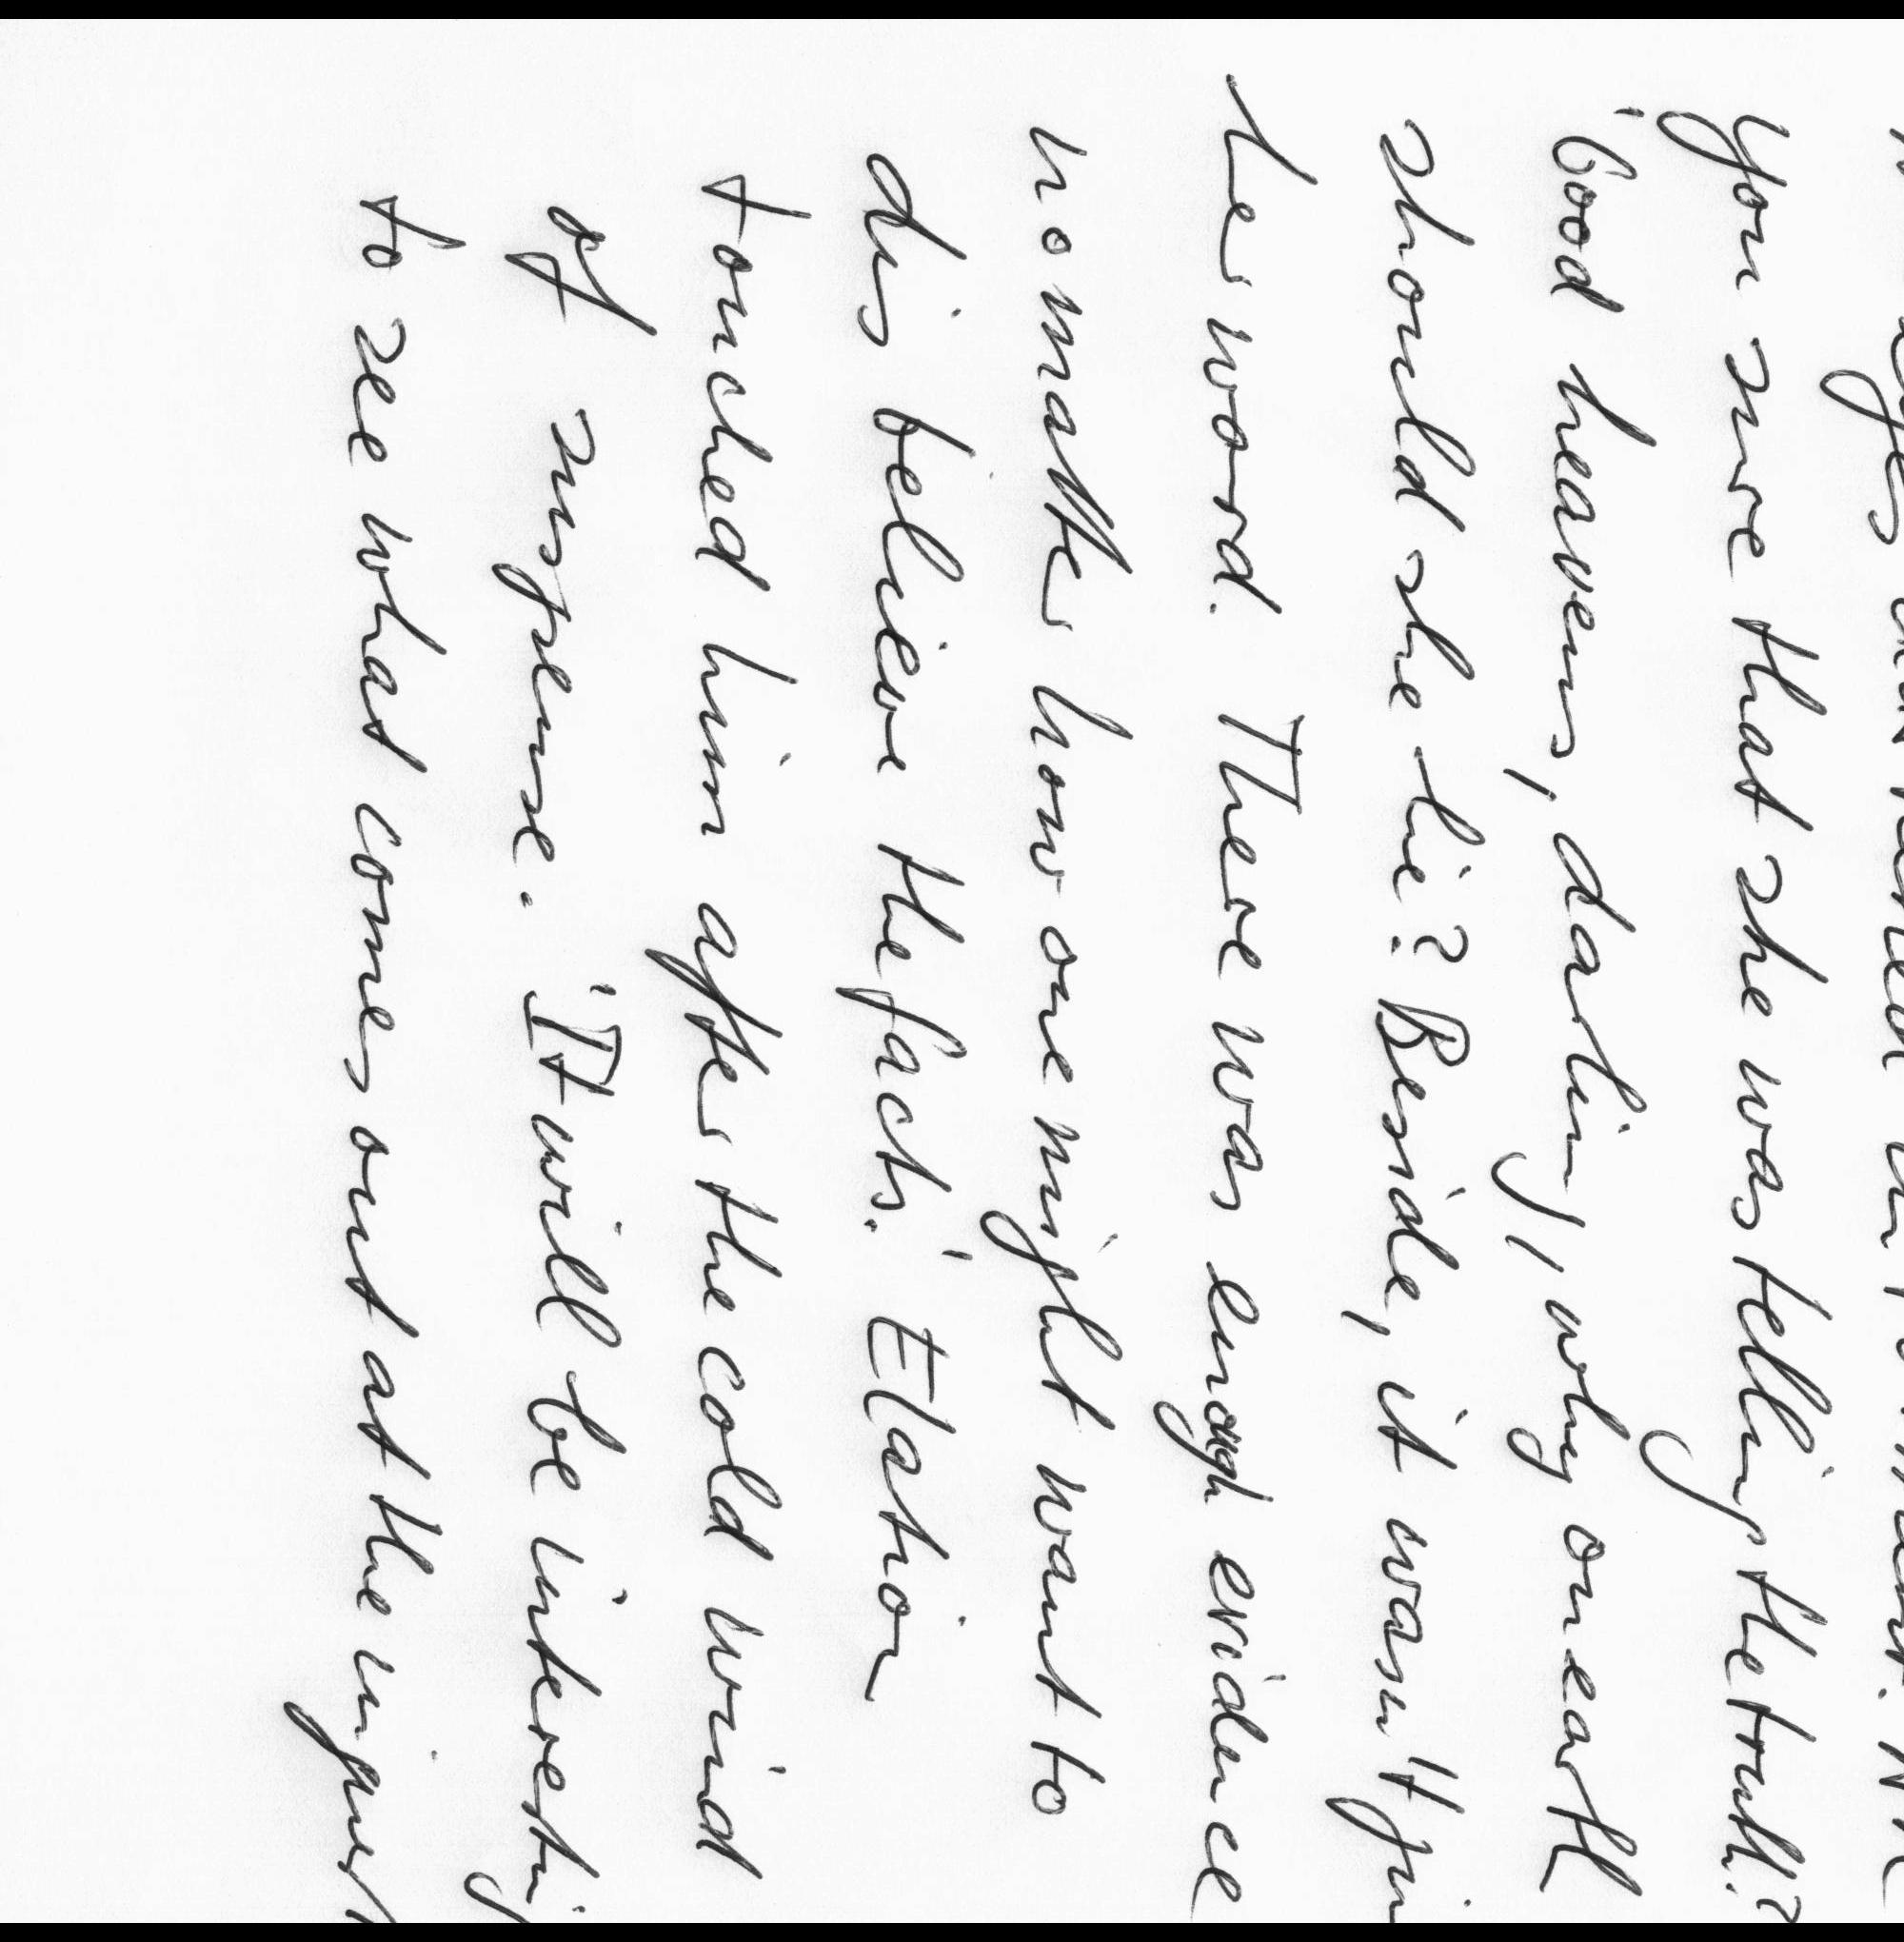 you sure that she was telling the truth?
'Good heavens, darling, why on earth
should she lie? Beside, it wasn't
her word. There was enough evidence
no matter how one might want to
dis believe the facts.' Elation
touched him after the cold wind
of suspense. 'It will be
to see what comes out at the